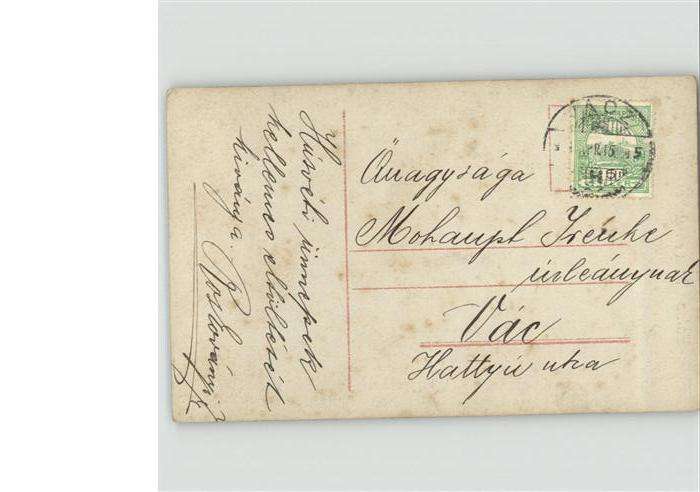 Húsvéti ünnepek
kellemes eltöltését
kivánja
Rosloványi
Őnagysága
Mohaupt Irénke
úrleánynak
Vác
Hattyú utca